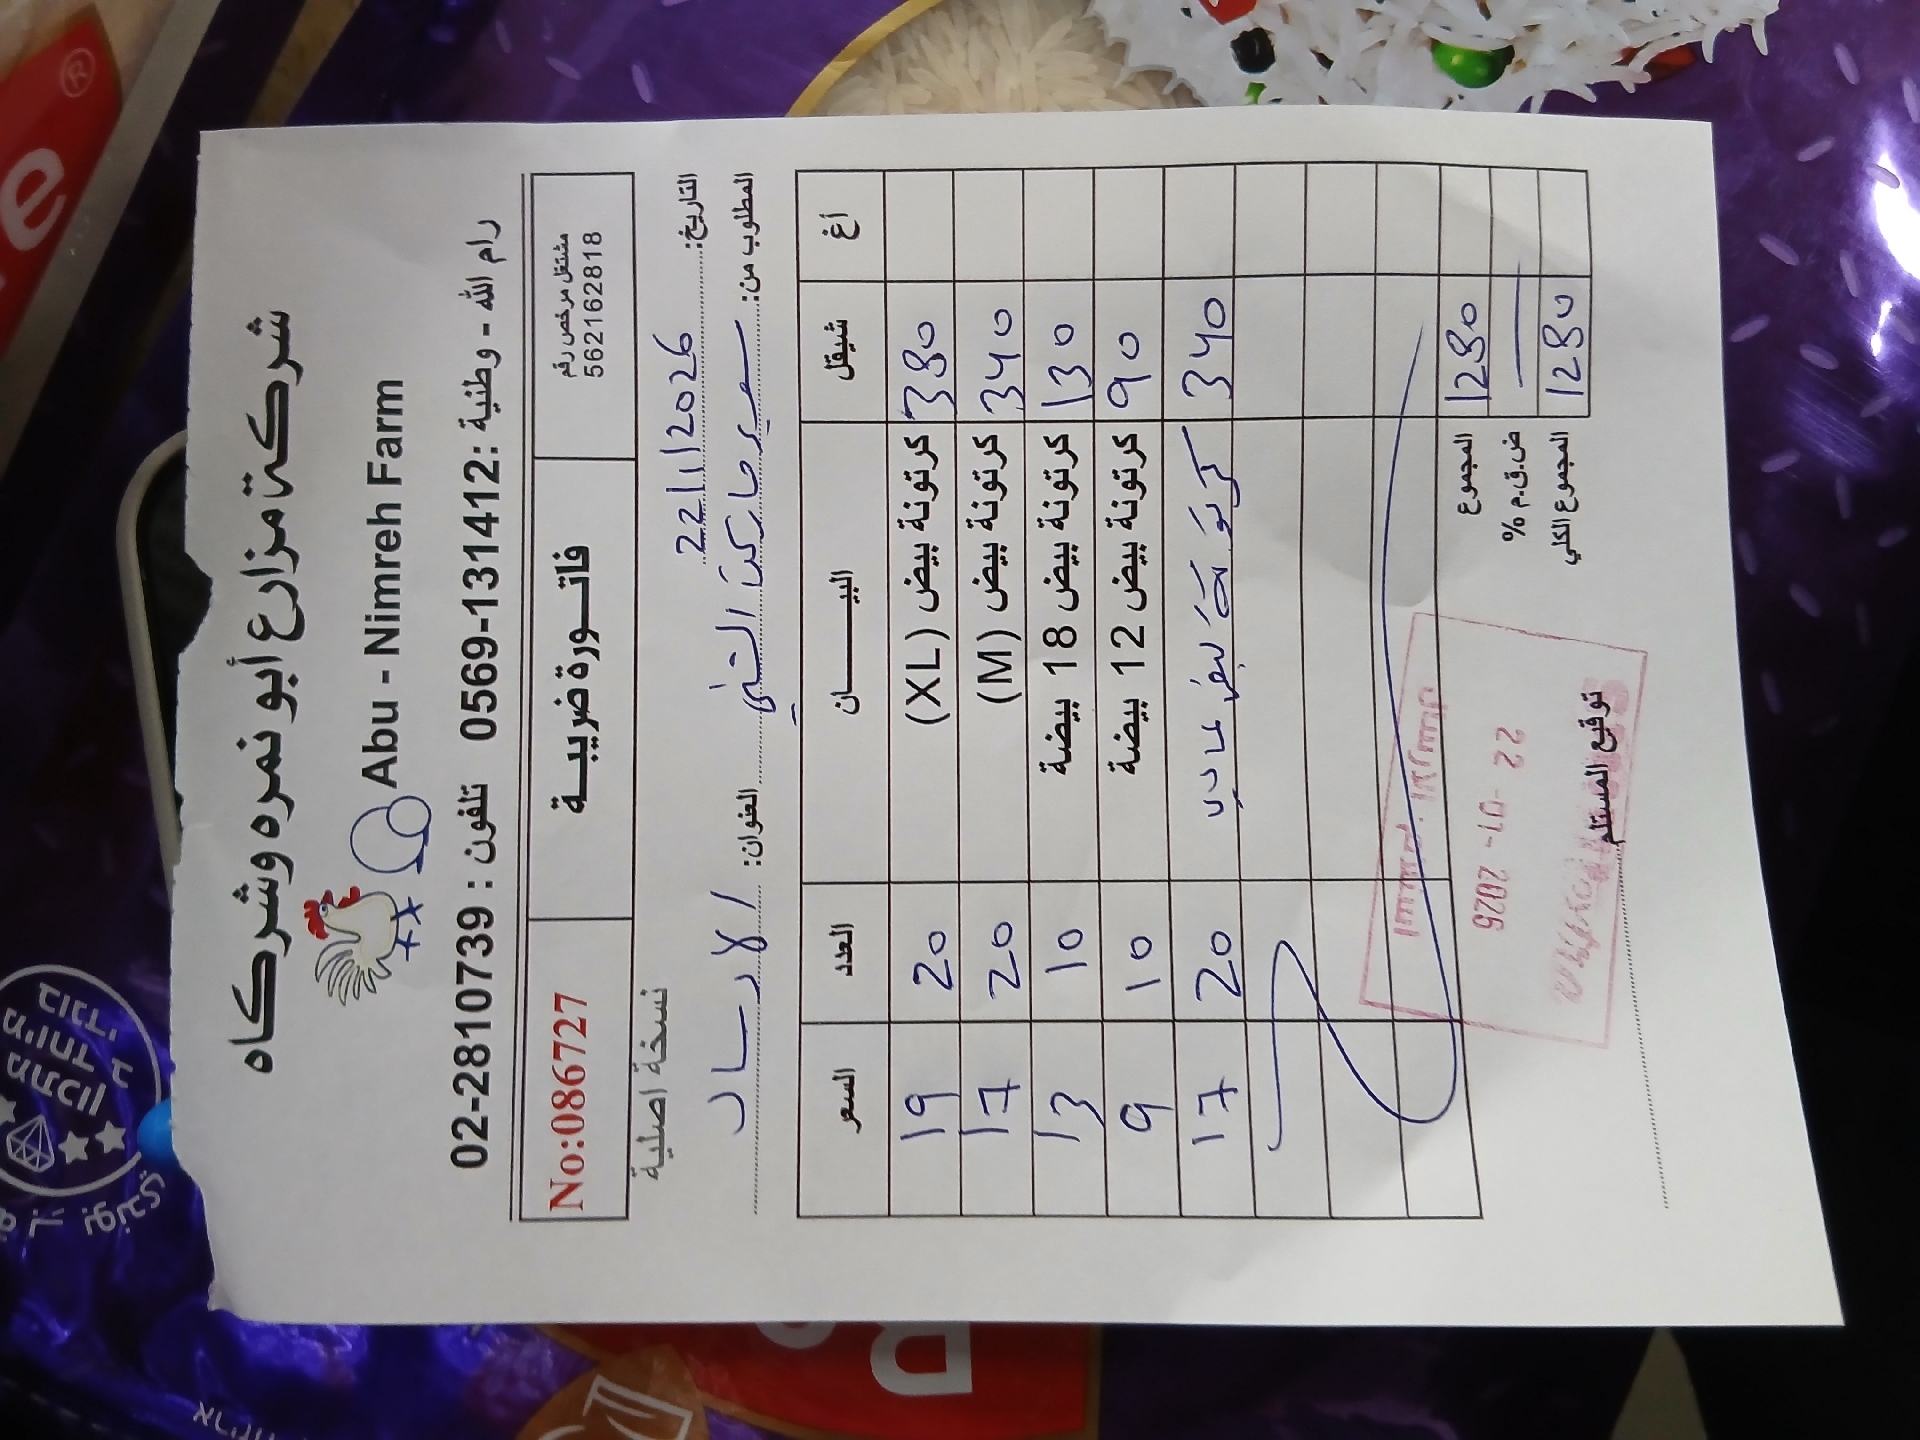 شركة مزارع أبو نمره وشركاه
Abu - Nimreh Farm
رام الله - وطنية: 0569-131412 تلفون : 02-2810739
مشتغل مرخص رقم
562162818
فاتــورة ضريبــة
No:086727
نسخة اصلية
التاريخ: 22/1/2026
المطلوب من: سوبر ماركت الشني العنوان: الارسال
أغ شيقل البيـــــان العدد السعر
380 كرتونة بيض (XL) 20 19
340 كرتونة بيض (M) 20 17
130 كرتونة بيض 18 بيضة 10 13
90 كرتونة بيض 12 بيضة 10 9
340 كرتونة بيض 20 17
المجموع 1280
ض.ق.م %
المجموع الكلي 1280
22 -01- 2026
توقيع المستلم
®